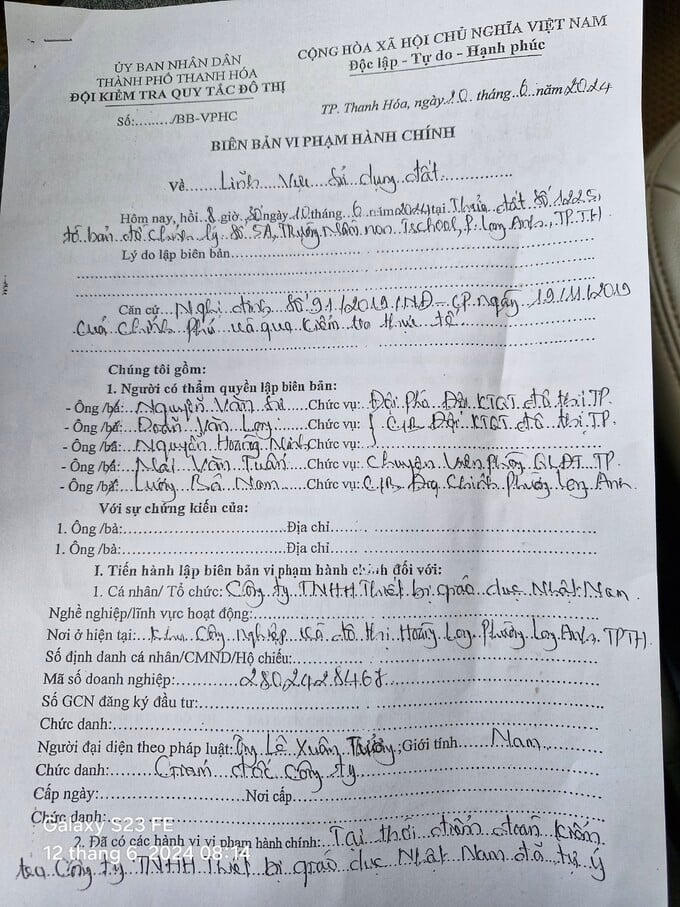 ỦY BAN NHÂN DÂN
THÀNH PHỐ THANH HÓA
ĐỘI KIỂM TRA QUY TẮC ĐÔ THỊ
Số:......../BB-VPHC
CỘNG HÒA XÃ HỘI CHỦ NGHĨA VIỆT NAM
Độc lập - Tự do - Hạnh phúc
TP. Thanh Hóa, ngày 10 tháng 6 năm 2024
BIÊN BẢN VI PHẠM HÀNH CHÍNH
Về......Lĩnh vực sử dụng đất..............
Hôm nay, hồi 8 giờ, 30 ngày 10 tháng 6 năm 2024 tại Thửa đất số 1225,
tờ bản đồ chỉnh lý số 5A, Trường Mầm non Ischool, P. Long Anh, TP.TH.
Lý do lập biên bản.......................
Căn cứ Nghị định số 91/2019/NĐ-CP ngày 19/11/2019
Của Chính Phủ và qua kiểm tra thực tế
Chúng tôi gồm:
1. Người có thẩm quyền lập biên bản:
- Ông /bà: Nguyễn Văn Chức vụ: Đội Phó Đội KTQT đô thị TP.
- Ông /bà: Doãn Văn Long Chức vụ: CB Đội KTQT đô thị TP.
- Ông /bà: Nguyễn Hoàng Chức vụ:
- Ông /bà: Mai Văn Tuấn Chức vụ: Chuyên viên phòng QLĐT TP.
- Ông /bà: Lương Bá Nam Chức vụ: CB Địa Chính Phường Long Anh
Với sự chứng kiến của:
1. Ông /bà:...............................Địa chỉ...............................
1. Ông /bà:...............................Địa chỉ...............................
I. Tiến hành lập biên bản vi phạm hành chính đối với:
1. Cá nhân/ Tổ chức: Công ty TNHH Thiết bị giáo dục Nhật Nam
Nghề nghiệp/lĩnh vực hoạt động:...............................
Nơi ở hiện tại: Khu Công Nghiệp và đô thị Hoàng Long Phường Long Anh, TPTH.
Số định danh cá nhân/CMND/Hộ chiếu:...............................
Mã số doanh nghiệp: 2802428468
Số GCN đăng ký đầu tư:...............................
Chức danh:...............................
Người đại diện theo pháp luật: Ông Lê Xuân ;Giới tính Nam
Chức danh: Giám đốc Công ty
Cấp ngày:....................Nơi cấp....................
Chức danh:...............................
2. Đã có các hành vi vi phạm hành chính: Tại thời điểm đoàn kiểm
tra Công ty TNHH Thiết bị giáo dục Nhật Nam đã tự ý
Galaxy S23 FE
12 tháng 6, 2024 08:14